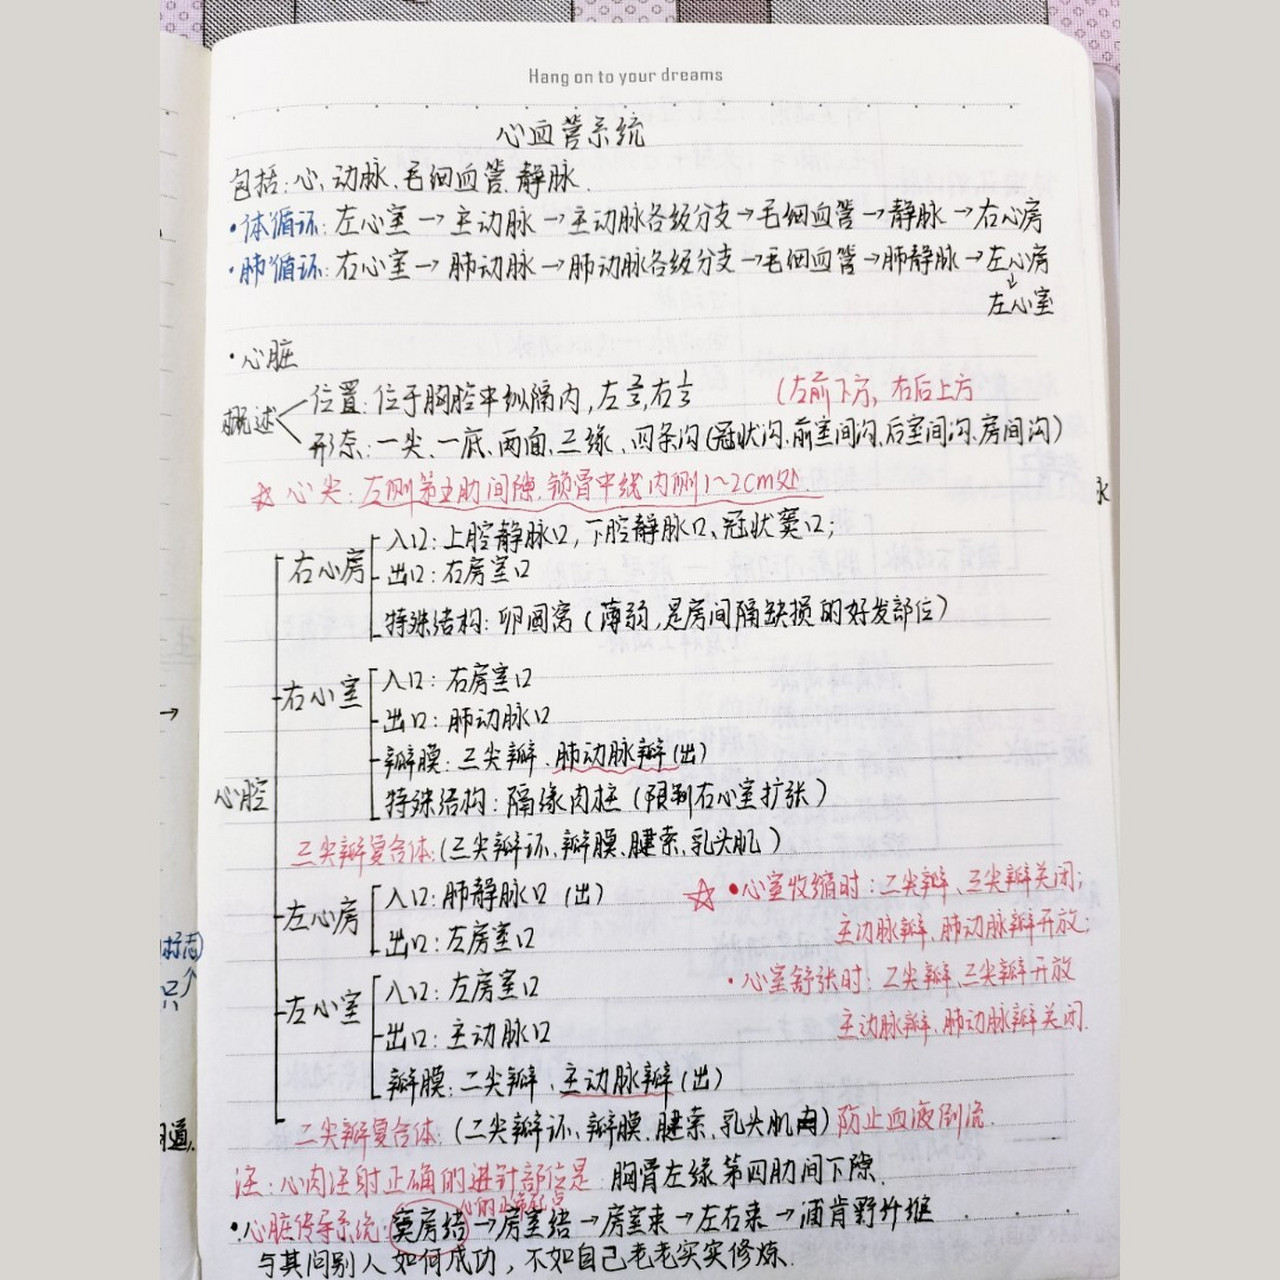 Hang on to your dreams
心血管系统
包括:心、动脉、毛细血管、静脉.
·体循环:左心室→主动脉→主动脉各级分支→毛细血管→静脉→右心房
·肺循环:右心室→肺动脉→肺动脉各级分支→毛细血管→肺静脉→左心房
↓
左心室
·心脏
概述
位置:位于胸腔中纵隔内,左2/3,右1/3 (左前下方,右后上方
形态:一尖、一底、两面、三缘、四条沟(冠状沟、前室间沟、后室间沟、房间沟)
☆心尖:左侧第五肋间隙.锁骨中线内侧1~2cm处.
心腔
右心房
入口:上腔静脉口,下腔静脉口、冠状窦口;
出口:右房室口
特殊结构:卵圆窝(薄弱,是房间隔缺损的好发部位)
右心室
入口:右房室口
出口:肺动脉口
瓣膜:三尖瓣、肺动脉瓣(出)
特殊结构:隔缘肉柱(限制右心室扩张)
三尖瓣复合体:(三尖瓣环、瓣膜、腱索、乳头肌)
左心房
入口:肺静脉口(出)
出口:左房室口
☆·心室收缩时:二尖瓣、三尖瓣关闭;
主动脉瓣、肺动脉瓣开放;
·心室舒张时:二尖瓣、三尖瓣开放
主动脉瓣、肺动脉瓣关闭.
左心室
入口:左房室口
出口:主动脉口
瓣膜:二尖瓣、主动脉瓣(出)
二尖瓣复合体:(二尖瓣环、瓣膜、腱索、乳头肌)防止血液倒流.
注:心内注射正确的进针部位是:胸骨左缘第四肋间下隙.
心的正常起点
·心脏传导系统:窦房结→房室结→房室束→左右束→浦肯野纤维
与其问别人如何成功,不如自己老老实实修炼.